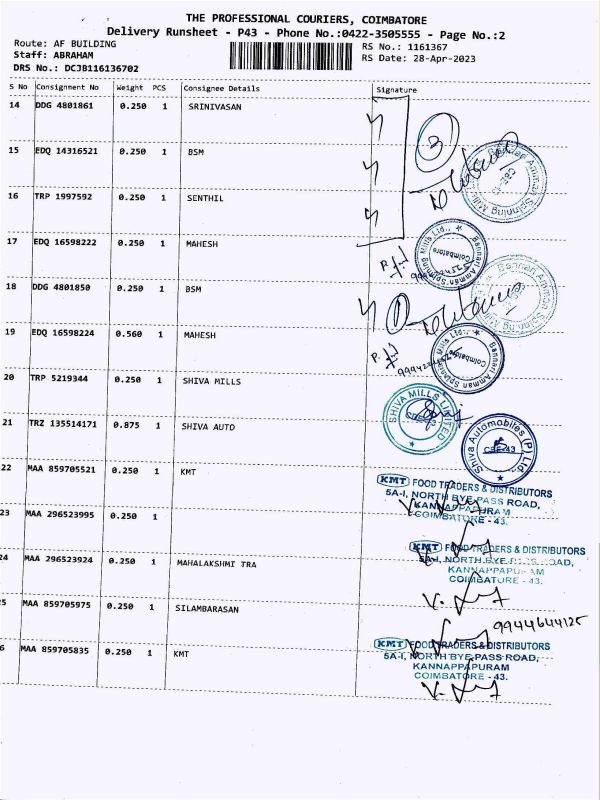 THE PROFESSIONAL COURIERS, COIMBATORE
Delivery Runsheet - P43 - Phone No.:0422-3505555 - Page No.:2
Route: AF BUILDING
RS No.: 1161367
Staff: ABRAHAM
RS Date: 28-Apr-2023
DRS No.: DCJB116136702
S No Consignment No Weight PCS Consignee Details Signature
14 DDG 4801861 0.250 1 SRINIVASAN
3
15 EDQ 14316521 0.250 1 BSM
Bannari Amman Spinning Mills
16 TRP 1997592 0.250 1 SENTHIL
17 EDQ 16598222 0.250 1 MAHESH
Bannari Amman Spinning Mills Ltd.,
Coimbatore
18 DDG 4801850 0.250 1 BSM
1
Bannari Amman Spinning Mills
19 EDQ 16598224 0.560 1 MAHESH
Bannari Amman Spinning Mills Ltd.,
Coimbatore
20 TRP 5219344 0.250 1 SHIVA MILLS
SHIVA MILLS LIMITED
21 TRZ 135514171 0.875 1 SHIVA AUTO
Shiva Automobiles (P) Ltd
CBE-43
22 MAA 859705521 0.250 1 KMT
KMT FOOD TRADERS & DISTRIBUTORS
5A-I, NORTH BYE-PASS ROAD,
KANNAPPAPURAM
COIMBATORE - 43.
23 MAA 296523995 0.250 1
KMT FOOD TRADERS & DISTRIBUTORS
5A-I, NORTH BYE-PASS ROAD,
KANNAPPAPURAM
COIMBATORE - 43.
24 MAA 296523924 0.250 1 MAHALAKSHMI TRA
5 MAA 859705975 0.250 1 SILAMBARASAN
9944644125
6 MAA 859705835 0.250 1 KMT
KMT FOOD TRADERS & DISTRIBUTORS
5A-I, NORTH BYE-PASS ROAD,
KANNAPPAPURAM
COIMBATORE - 43.